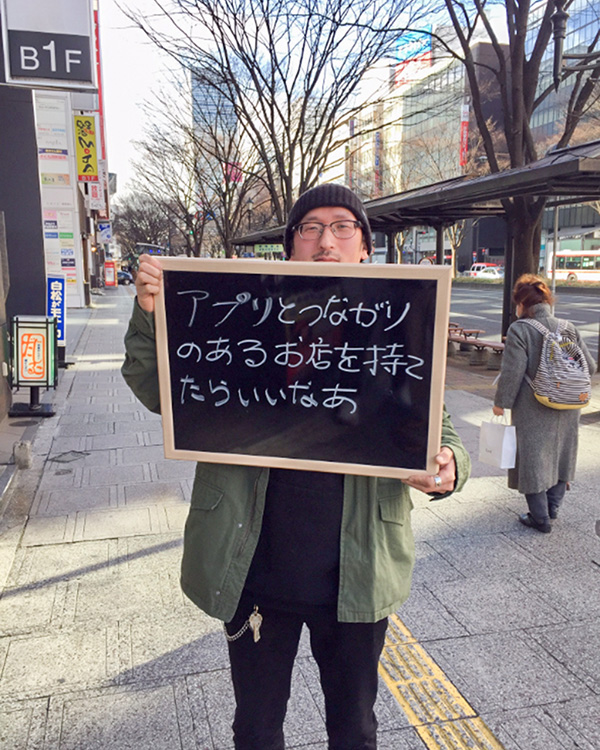 B1F
アプリとつながり
のあるお店を持て
たらいいなあ